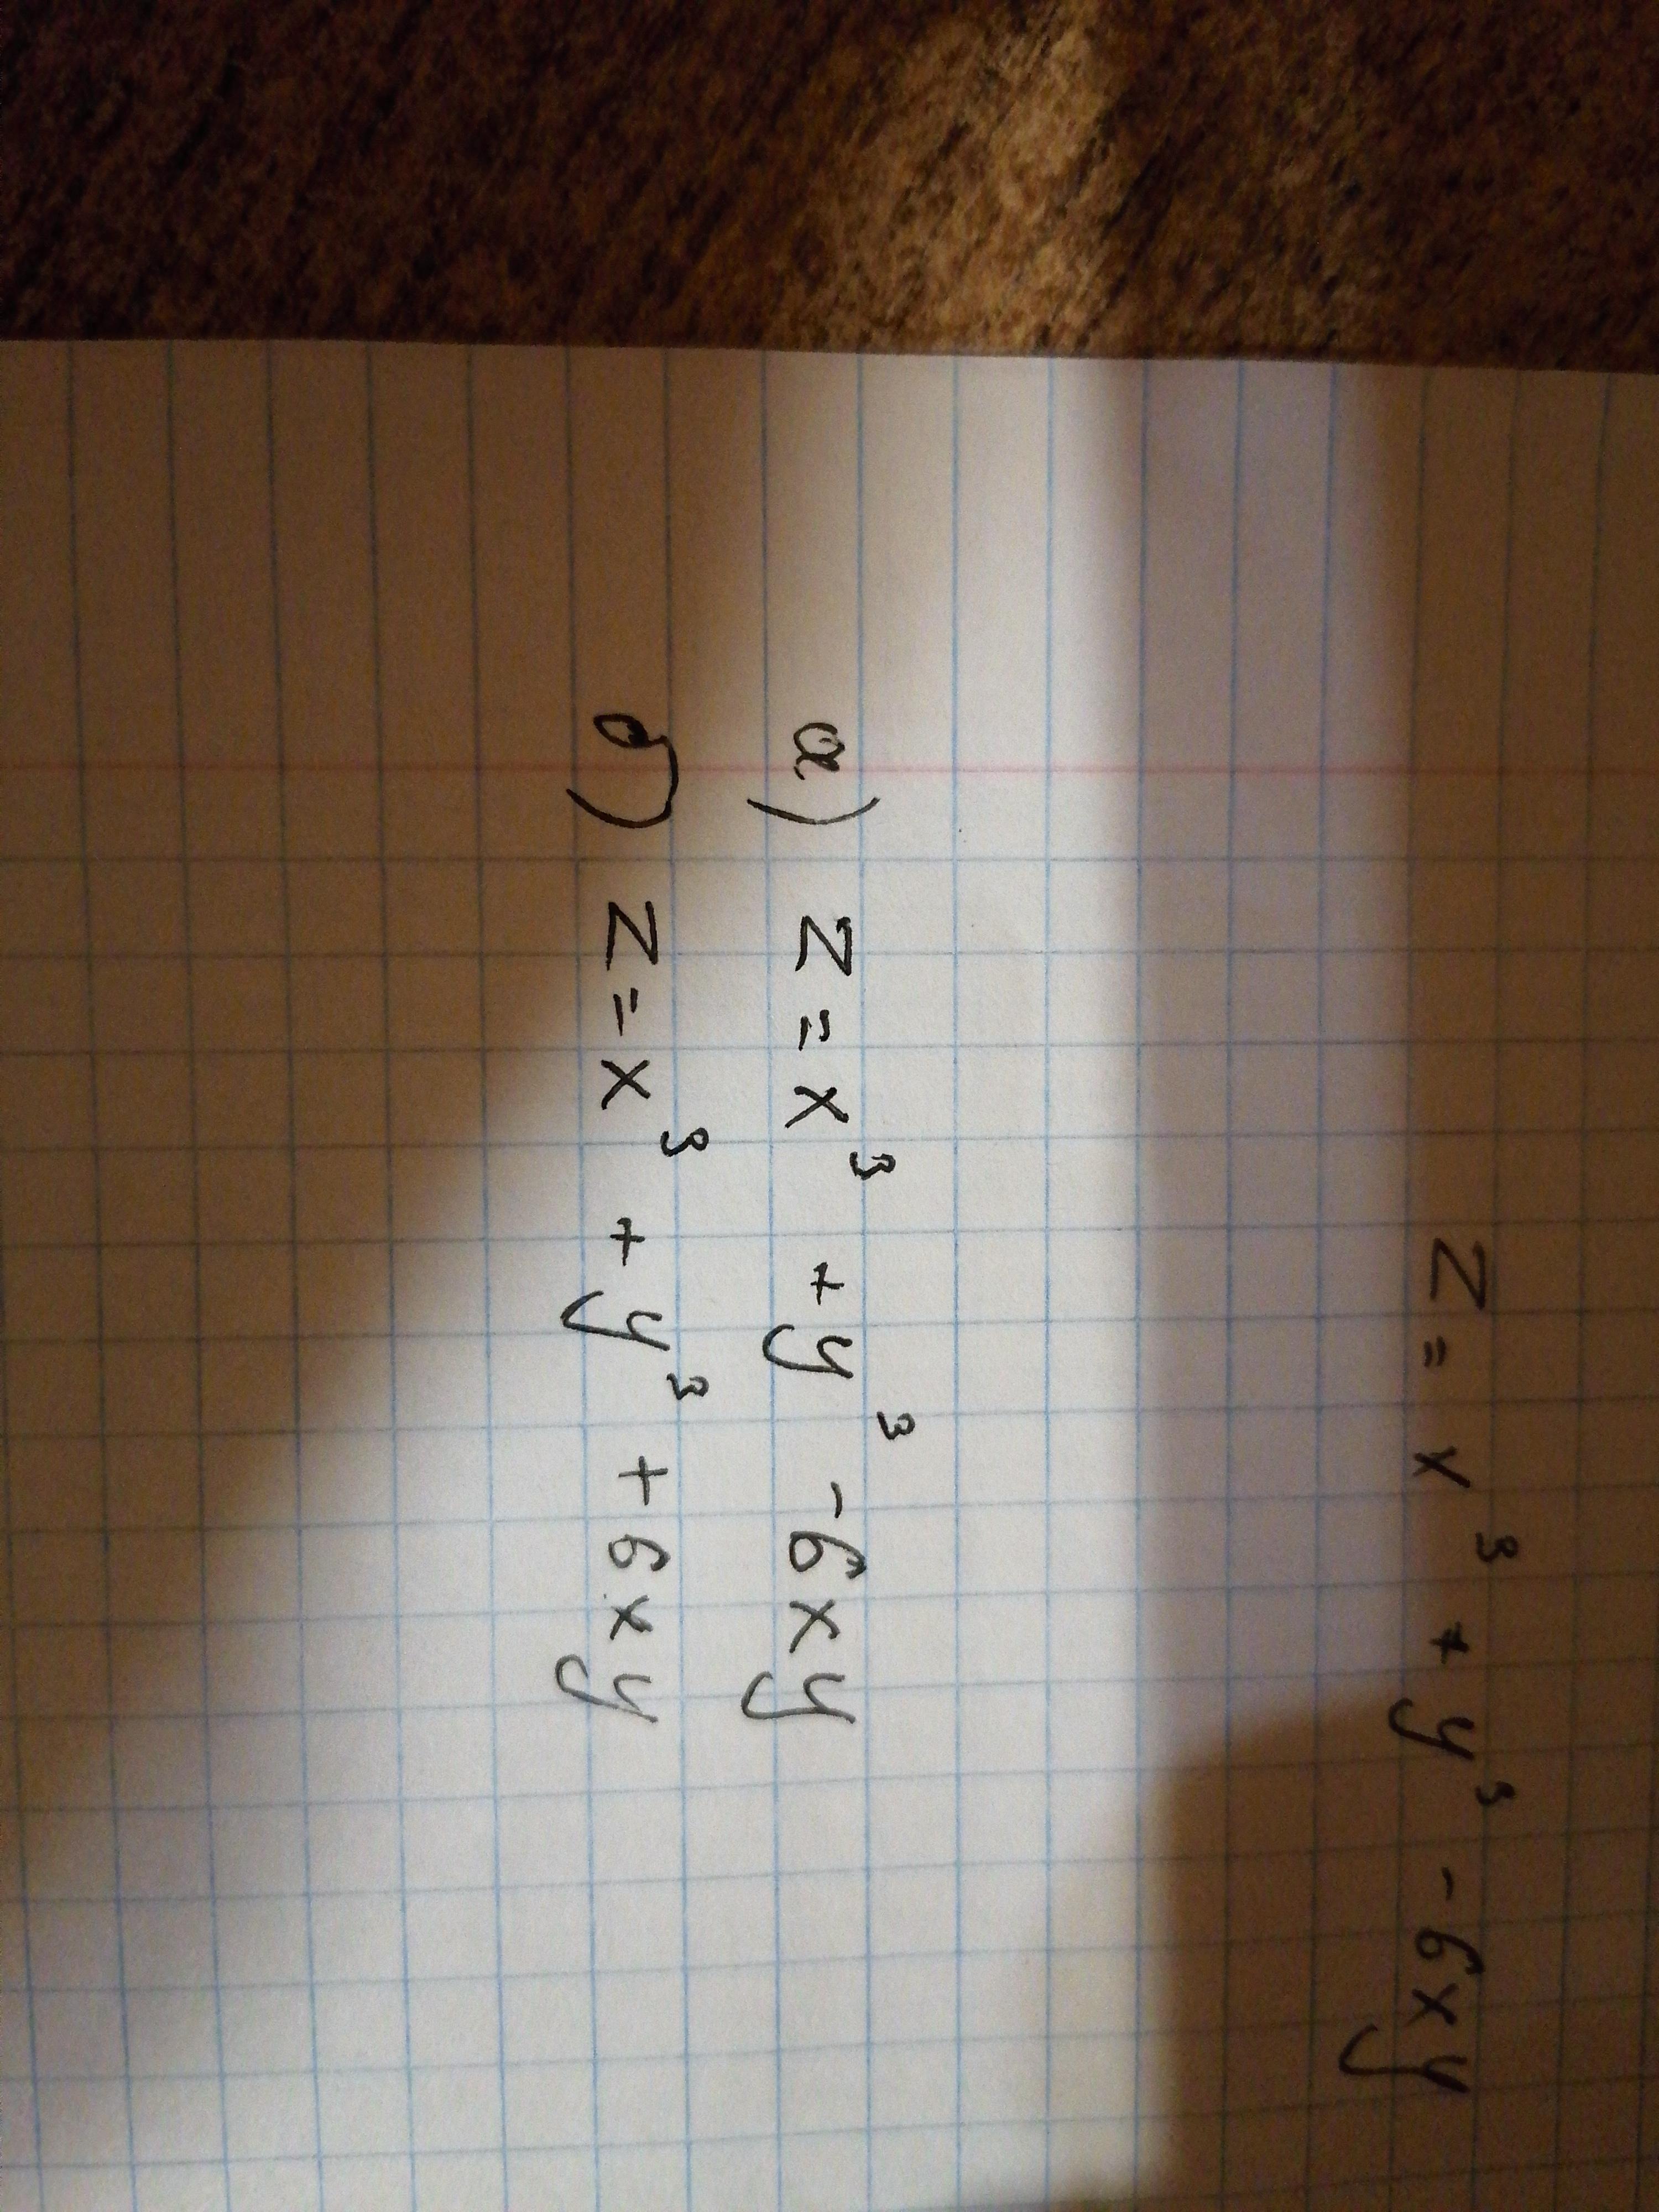 z = x³ + y³ - 6xy
а) z = x³ + y³ - 6xy
б) z = x³ + y³ + 6xy